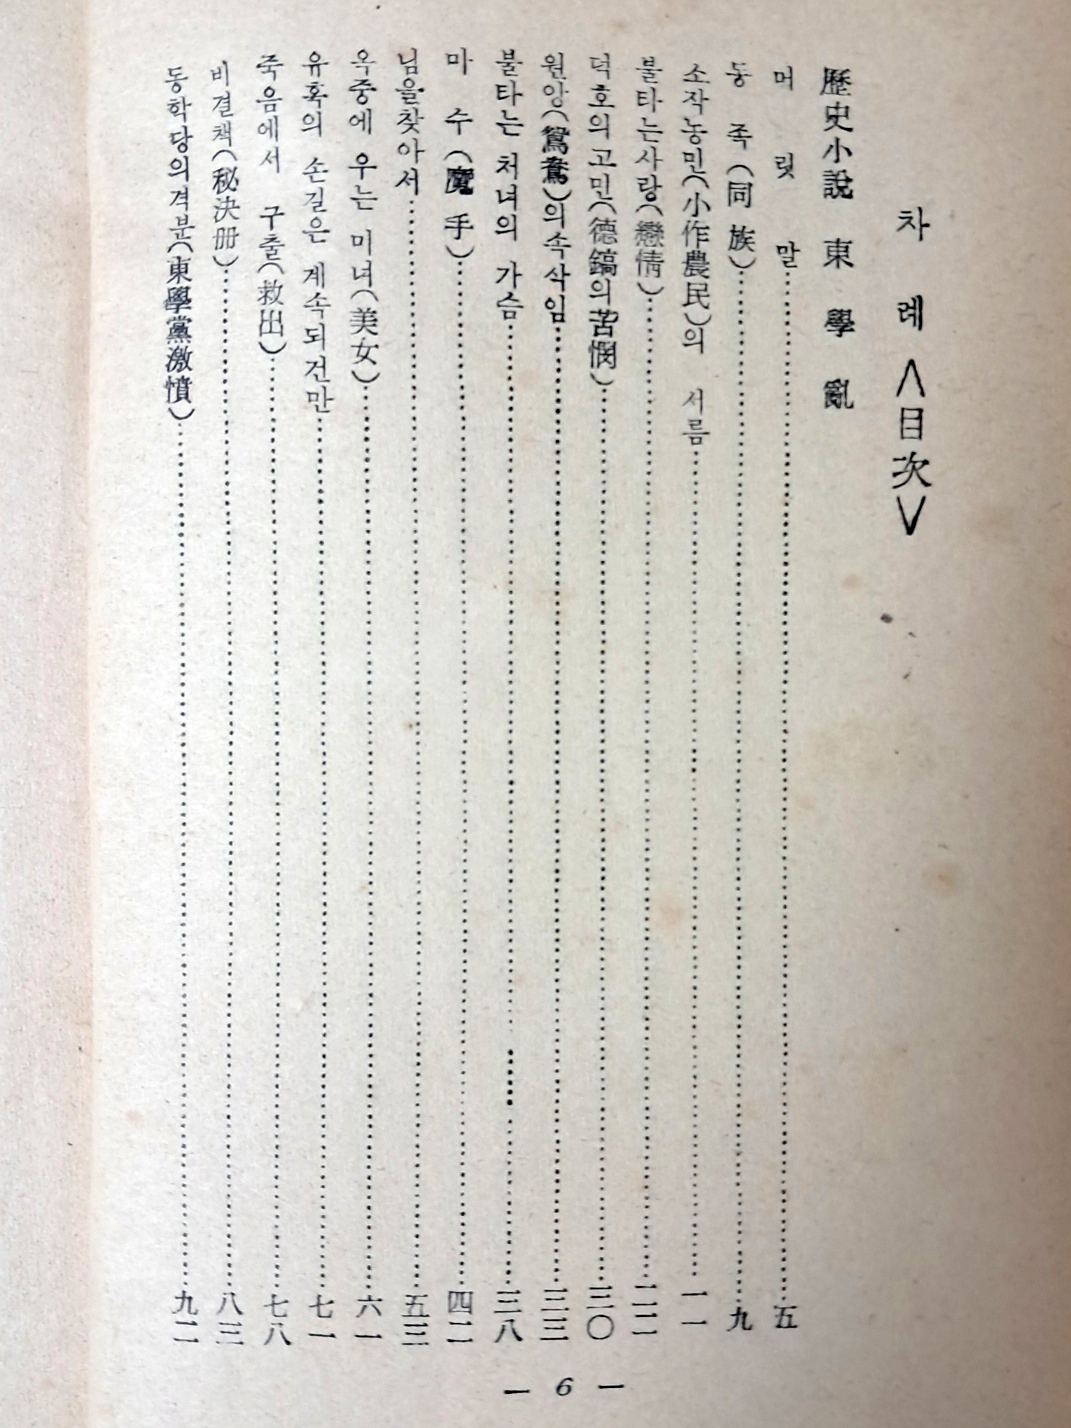 차 례 <目次>
歷史小說 東 學 亂
머 릿 말……五
동 족(同 族)……九
소작농민(小作農民)의 서름……一一
불타는사랑(戀情)……二二
덕호의고민(德鎬의苦憫)……三〇
원앙(鴛鴦)의속삭임……三三
불타는 처녀의 가슴……三八
마 수(魔 手)……四二
님을찾아서……五三
옥중에 우는 미녀(美女)……六一
유혹의 손길은 계속되건만……七一
죽음에서 구출(救出)……七八
비결책(秘決册)……八三
동학당의격분(東學黨激憤)……九二
— 6 —